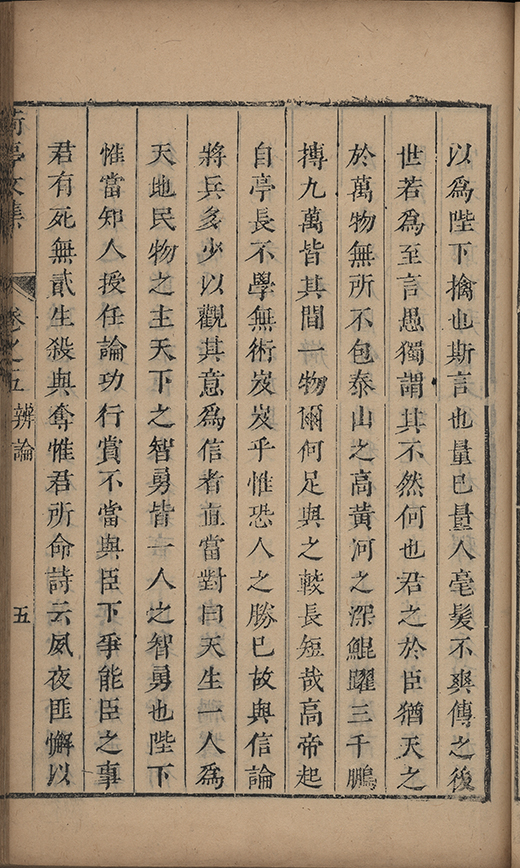 以爲陛下擒也斯言也量已量人毫髮不爽傳之後
世若爲至言愚獨謂其不然何也君之於臣猶天之
於萬物無所不包泰山之高黃河之深鯤躍三千鵬
摶九萬皆其間一物爾何足與之較長短哉高帝起
自亭長不學無術岌岌乎惟恐人之勝已故與信論
將兵多少以觀其意爲信者直當對曰天生一人爲
天地民物之主天下之智勇皆一人之智勇也陛下
惟當知人授任論功行賞不當與臣下爭能臣之事
君有死無貳生殺與奪惟君所命詩云夙夜匪懈以
亭文集
卷之五 辨論
五